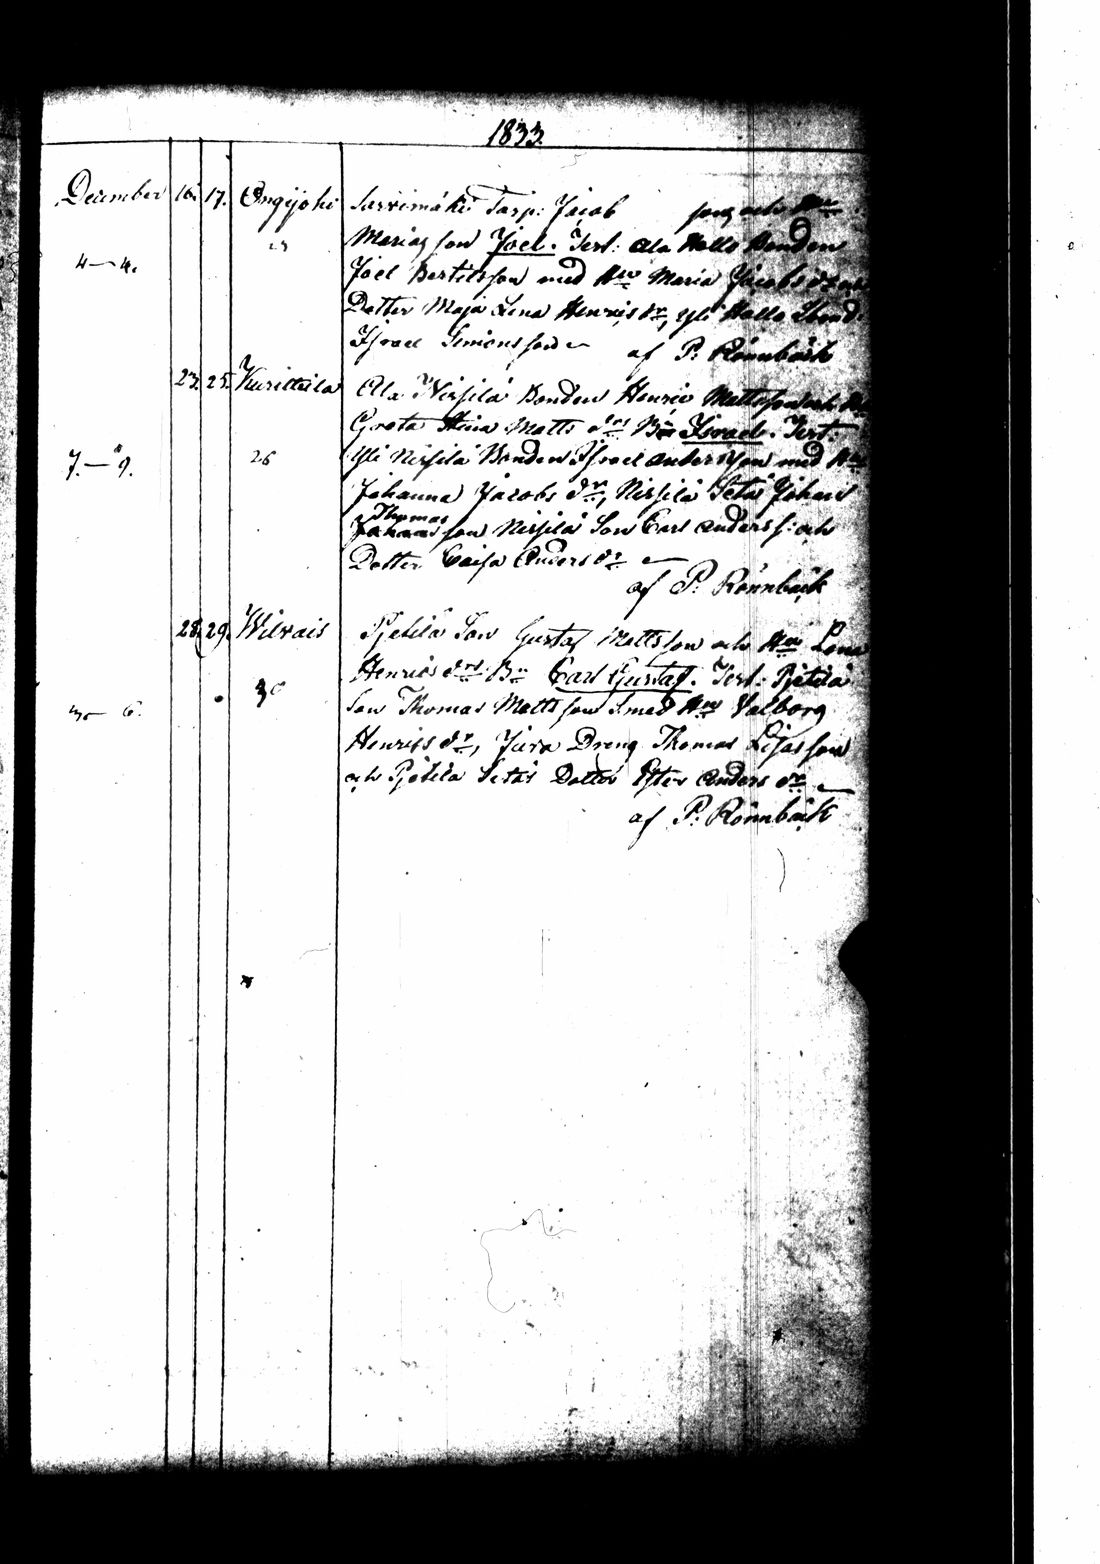 1833.
December 16. 17. Ongijoki Sarrimäki Torp: Jacob son och Hu
Marias son Joel. Test: Ala Hallo Bonden
4—4. Joel Bertilsson med Hu Maria Jacobs dr
Dotter Maja Lena Henrics dr, Yli Hallo Bond:
Israel Simonsson
af P. Rönnbäck
23. 25. Kurittula Ala Nissilä Bonden Henric Mattsson och Hu
Greta Stina Matts drs Bn Israel. Test:
7.—9. 26 Yli Nissilä Bonden Israel Andersson med Hu
Johanna Jacobs dr, Nissilä Johans
Thomas
son Nissilä Son Carl Anders s: och
Dotter Caisa Anders dr
af P. Rönnbäck
28. 29. Wilvais Pjetilä Son Gustaf Mattsson och Hu Lena
Henrics drs Bn Carl Gustaf. Test: Pjetilä
30 6. Son Thomas Mattsson med Hu Valborg
Henrics dr, Jura Dreng Thomas son
och Pjetilä Dotter Ester Anders dr
af P. Rönnbäck